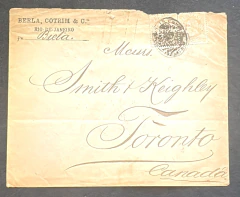 BERLA, COTRIM & Cº.
RIO DE JANEIRO
Messrs.
Smith & Keighley
Toronto
Canada